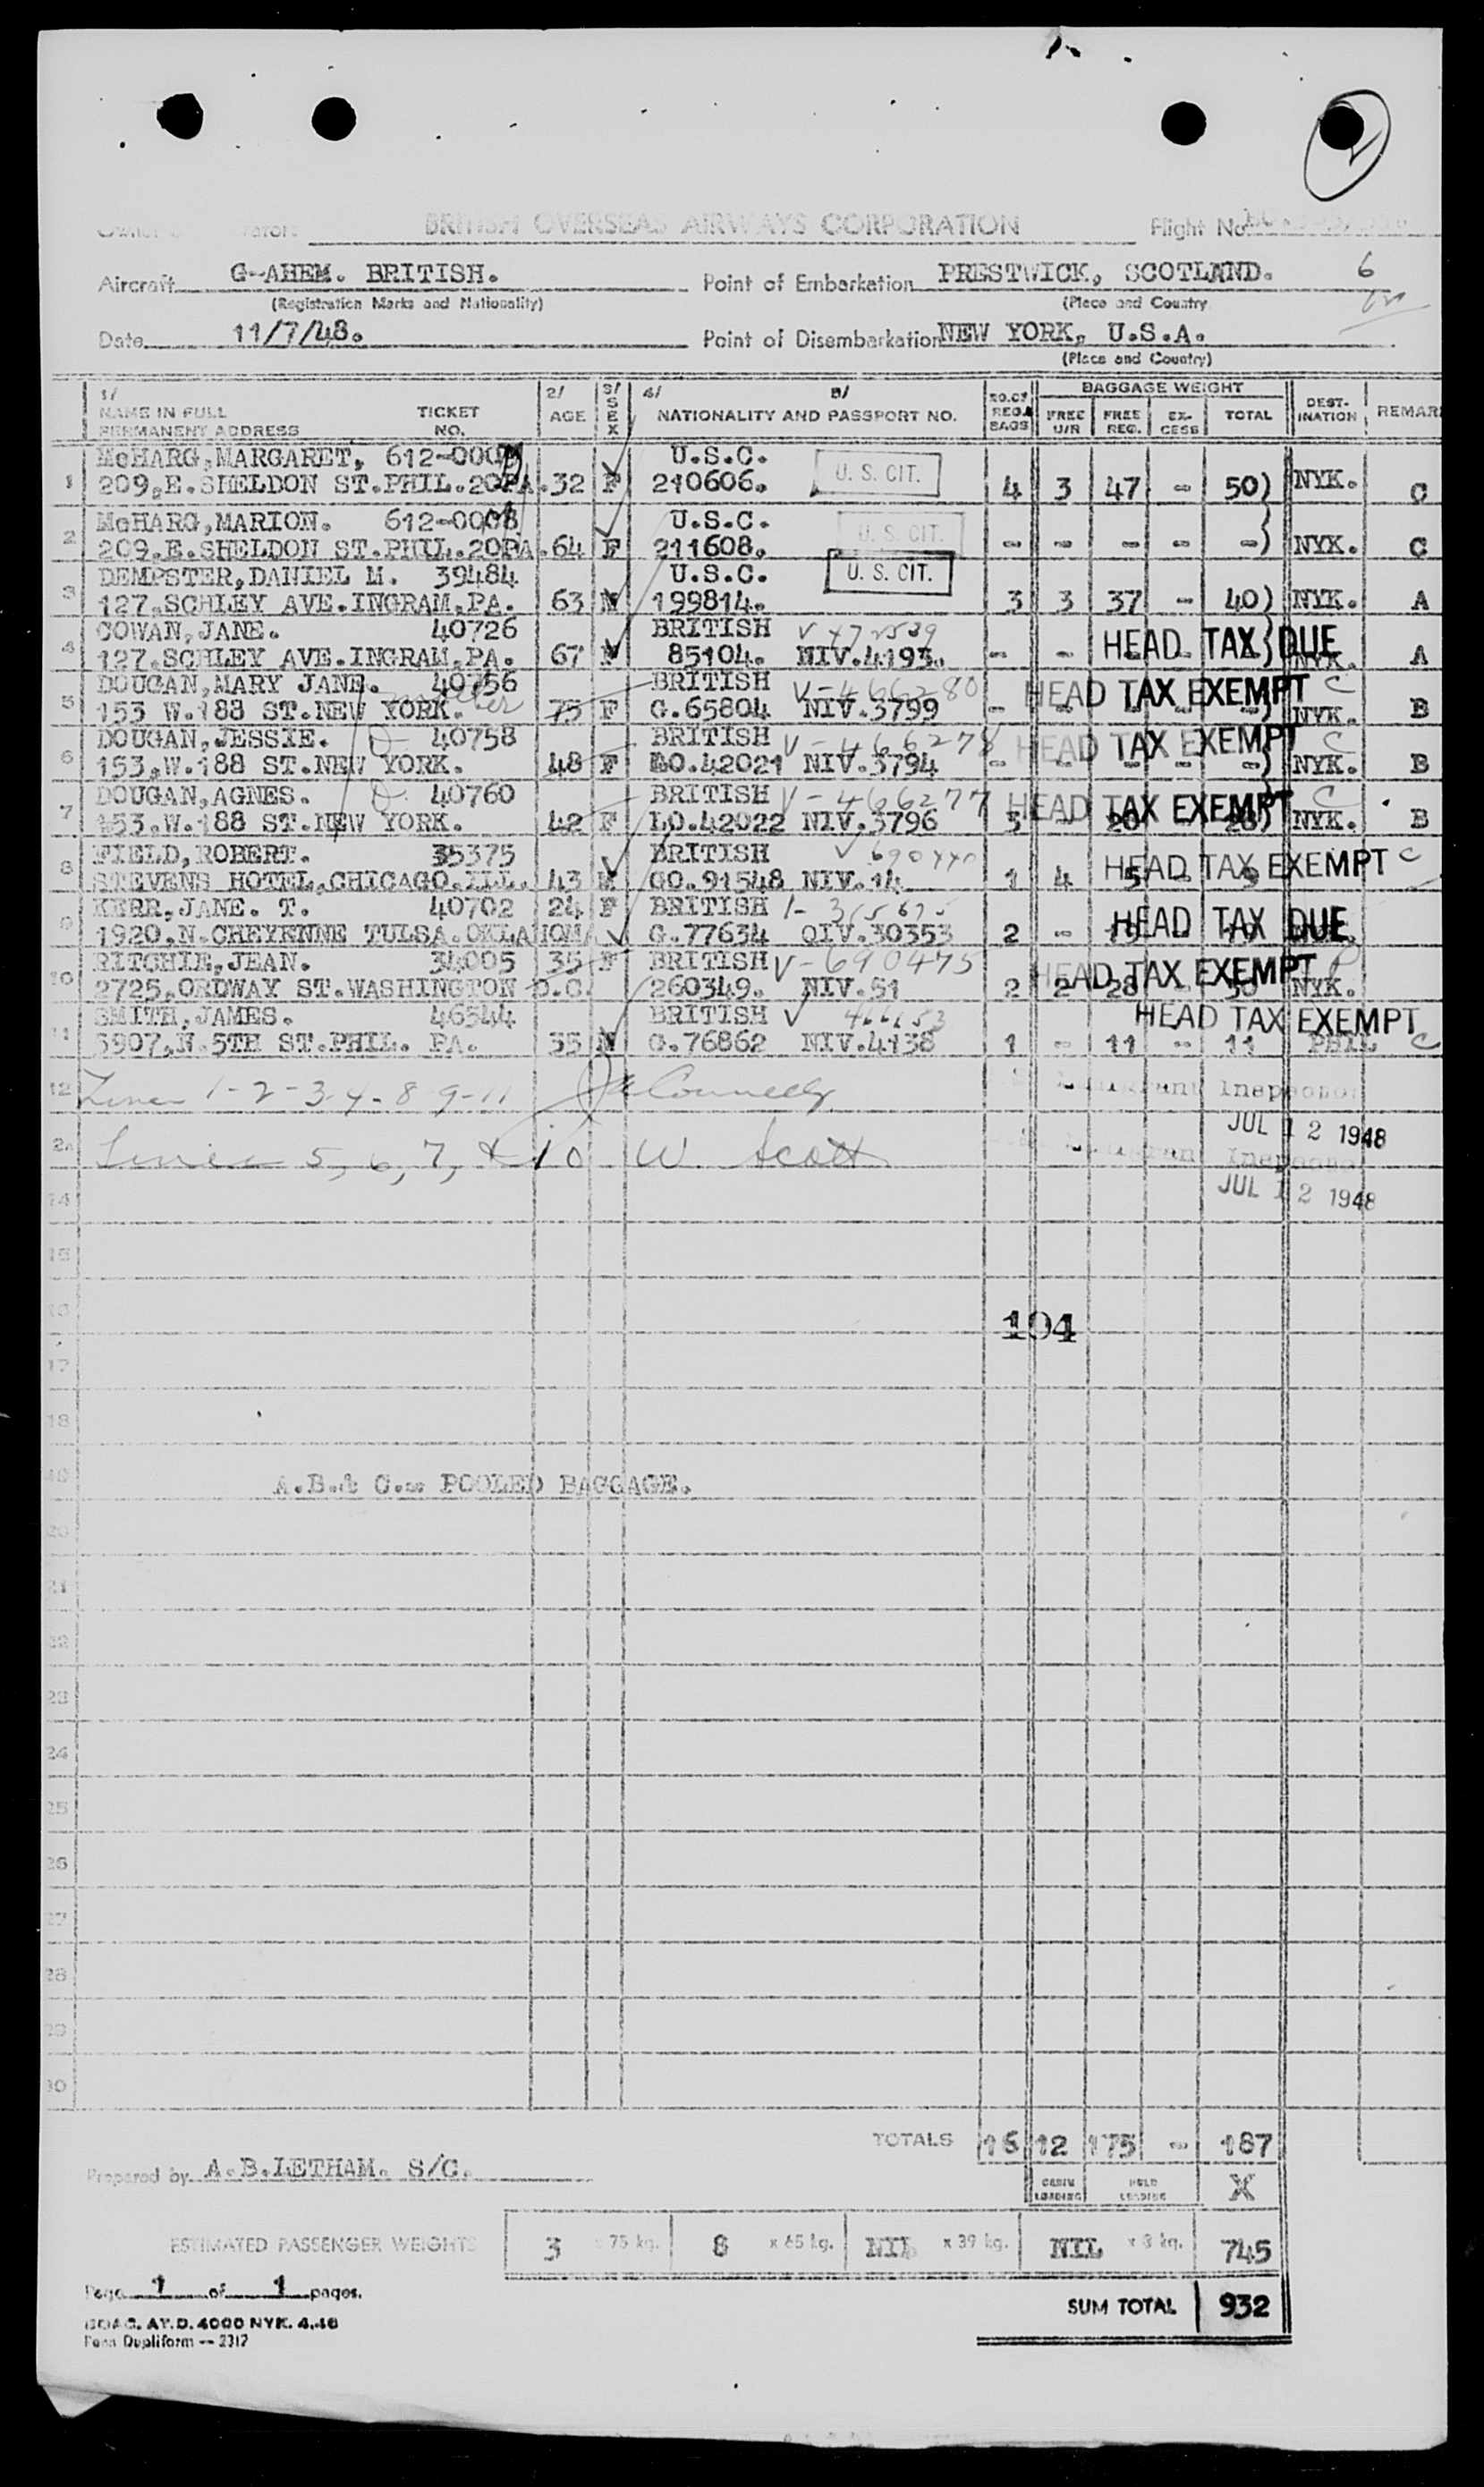 BRITISH OVERSEAS AIRWAYS CORPORATION Flight No.
Aircraft G-AHEM. BRITISH. Point of Embarkation PRESTWICK, SCOTLAND. 6
(Registration Marks and Nationality) (Place and Country
Date 11/7/48. Point of Disembarkation NEW YORK, U.S.A.
(Place and Country)
1/ 2/ 3/ 4/ 5/ BAGGAGE WEIGHT
NAME IN FULL TICKET AGE SEX NATIONALITY AND PASSPORT NO. NO. OF REG. BAGS FREE U/R FREE REG. EX-CESS TOTAL DEST-INATION REMAR
PERMANENT ADDRESS NO.
McHARG, MARGARET, U.S.C.
1 209.E.SHELDON ST.PHIL.20PA. 32 F 210606. U. S. CIT. 4 3 47 - 50) NYK. C
McHARG, MARION. U.S.C.
2 209.E.SHELDON ST.PHIL.20PA. 64 F 211608. U. S. CIT. - - - - -) NYK. C
DEMPSTER, DANIEL M. 39484 U.S.C.
3 127.SCHLEY AVE.INGRAM.PA. 63 M 199814. U. S. CIT. 3 3 37 - 40) NYK. A
COWAN, JANE. 40726 BRITISH
4 127.SCHLEY AVE.INGRAM.PA. 67 85104. NIV.4193. - - HEAD TAX DUE NYK. A
DOUGAN, MARY JANE. 40756 BRITISH V-466280
5 153 W.188 ST.NEW YORK. 75 F G.65804 NIV.3799 - HEAD TAX EXEMPT NYK. C B
DOUGAN, JESSIE. 40758 BRITISH V-466278
6 153.W.188 ST.NEW YORK. 48 F LO.42021 NIV.3794 - HEAD TAX EXEMPT -) NYK. C B
DOUGAN, AGNES. 40760 BRITISH V-466277
7 153.W.188 ST.NEW YORK. 42 F LO.42022 NIV.3796 3 HEAD TAX EXEMPT NYK. C B
FIELD, ROBERT. 35375 BRITISH
8 STEVENS HOTEL.CHICAGO.ILL. 43 M GO.91548 NIV.14 1 4 5 HEAD TAX EXEMPT C
KERR, JANE. T. 40702 24 F BRITISH
9 1920.N.CHEYENNE TULSA.OKLAHOMA G.77634 QIV.30353 2 - HEAD TAX DUE
RITCHIE, JEAN. 34005 35 F BRITISH V-690475
10 2725.ORDWAY ST.WASHINGTON D.C. 260349. NIV.51 2 2 28 HEAD TAX EXEMPT 30 NYK.
SMITH, JAMES. 46544 BRITISH HEAD TAX EXEMPT
11 5907.N.5TH ST.PHIL. PA. 35 M G.76862 NIV.4138 1 - 11 - 11 PHIL C
12 Lines 1-2-3-4-8-9-11 Connelly Immigrant Inspector
JUL 12 1948
Lines 5, 6, 7, & 10 W. Scott Immigrant Inspector
14 JUL 12 1948
15
16 194
17
18
19 A.B.& C.= POOLED BAGGAGE.
20
21
22
23
24
25
26
27
28
29
30
TOTALS 16 12 175 - 187
Prepared by A.B.LETHAM. S/C.
CABIN LOADING HOLD LOADING X
ESTIMATED PASSENGER WEIGHTS 3 x 75 kg. 8 x 65 kg. NIL x 39 kg. NIL x 8 kg. 745
Page 1 of 1 pages.
SUM TOTAL 932
BOAC. AY.D. 4000 NYK. 4.48
Penn Dupliform -- 2312